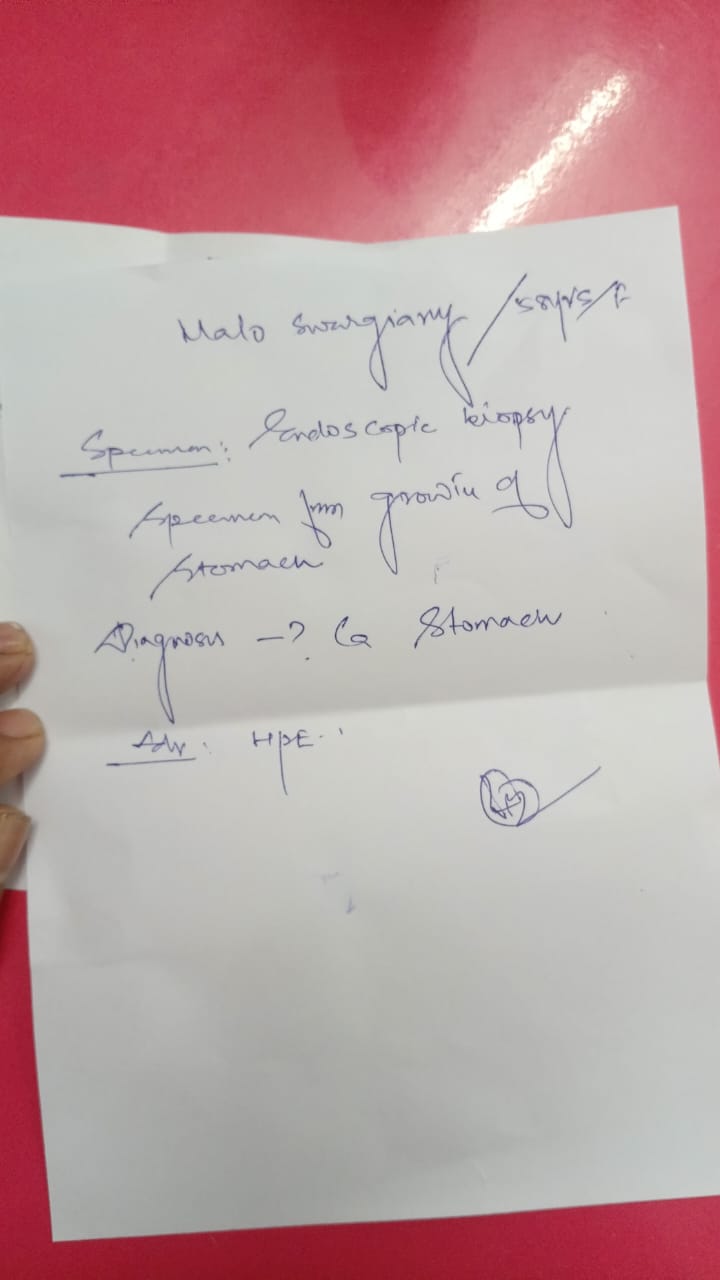 Malo Swargiary / 58yrs/F
Specimen: Endoscopic biopsy
specimen from growth of
stomach
Diagnosis -? Ca Stomach
Adv: HPE